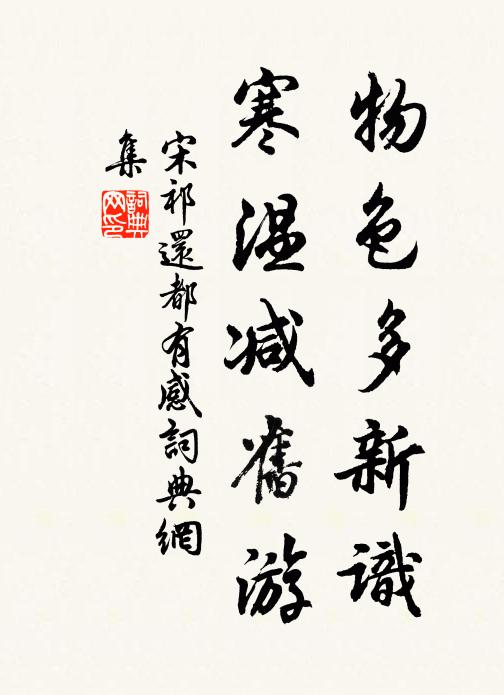 物色多新識
寒温减舊游
宋祁還都有感詞典網
集
詞典
网印